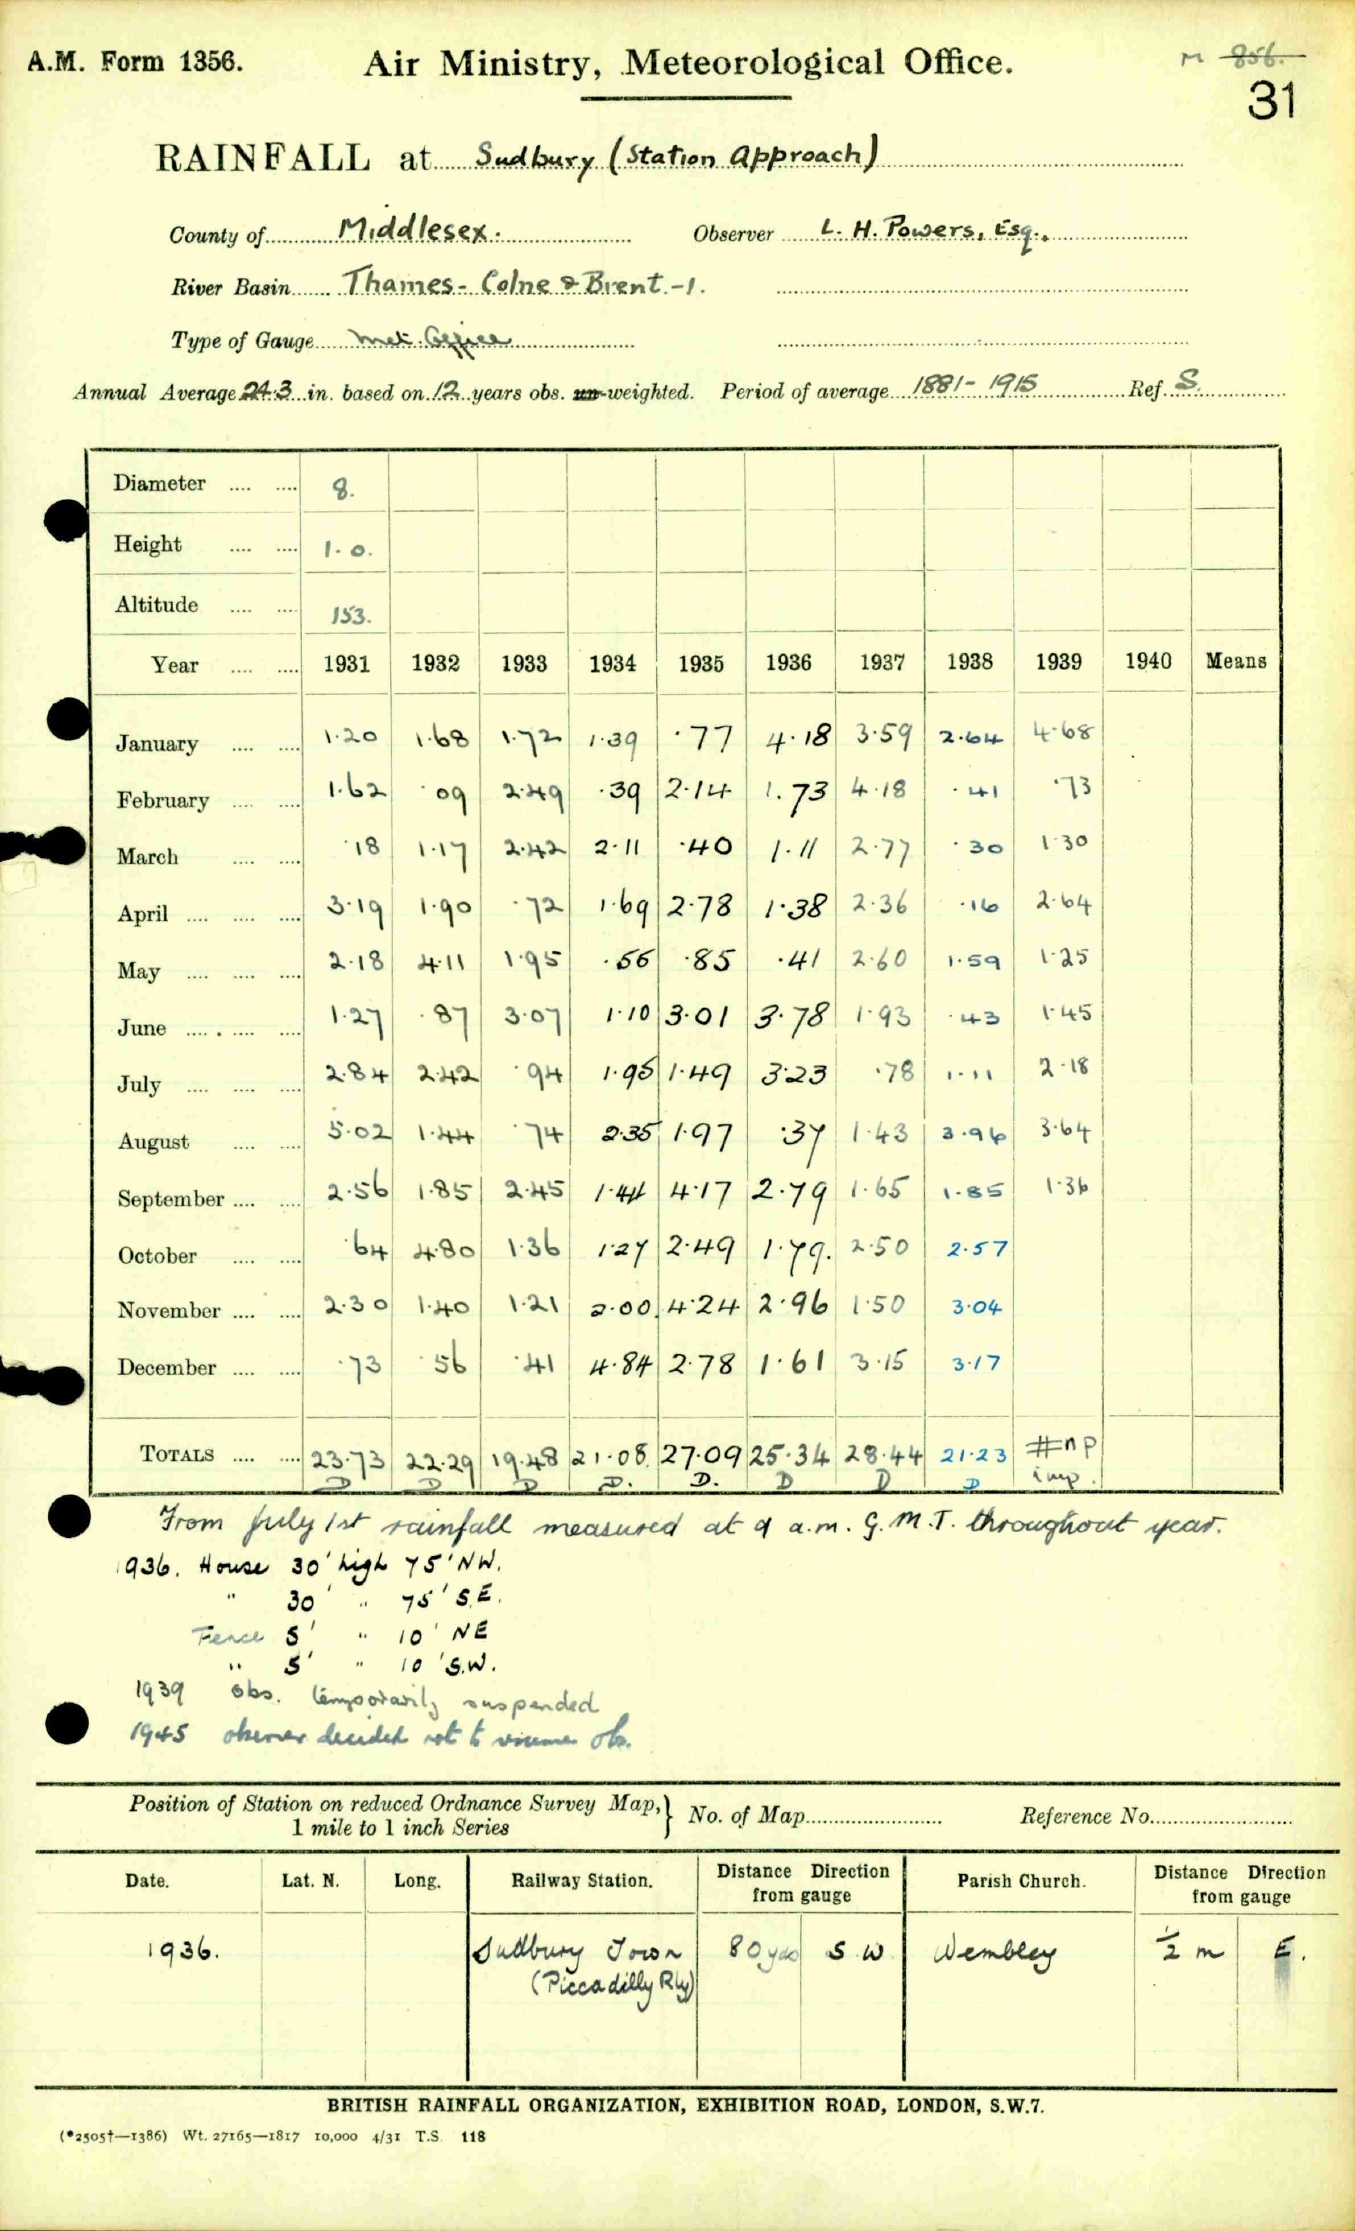 A.M. Form 1356.
Air Ministry, Meteorological Office.
M 856.
31
RAINFALL at Sudbury (Station Approach)
County of Middlesex. Observer L. H. Powers, Esq.
River Basin Thames - Colne & Brent. -1.
Type of Gauge Met. Office
Annual Average 24.3 in. based on 12 years obs. un-weighted. Period of average 1881 - 1915 Ref. S.
Diameter .... .... 8.
Height .... .... 1.0.
Altitude .... .... 153.
Year .... .... 1931 1932 1933 1934 1935 1936 1937 1938 1939 1940 Means
January .... .... 1.20 1.68 1.72 1.39 .77 4.18 3.59 2.64 4.68
February .... .... 1.62 .09 2.49 .39 2.14 1.73 4.18 .41 .73
March .... .... .18 1.17 2.42 2.11 .40 1.11 2.77 .30 1.30
April .... .... .... 3.19 1.90 .72 1.69 2.78 1.38 2.36 .16 2.64
May .... .... .... 2.18 4.11 1.95 .56 .85 .41 2.60 1.59 1.25
June .... .... .... 1.27 .87 3.07 1.10 3.01 3.78 1.93 .43 1.45
July .... .... .... 2.84 2.42 .94 1.95 1.49 3.23 .78 1.11 2.18
August .... .... 5.02 1.44 .74 2.35 1.97 .37 1.43 3.96 3.64
September .... .... 2.56 1.85 2.45 1.44 4.17 2.79 1.65 1.85 1.36
October .... .... .64 4.80 1.36 1.27 2.49 1.79. 2.50 2.57
November .... .... 2.30 1.40 1.21 2.00. 4.24 2.96 1.50 3.04
December .... .... .73 .56 .41 4.84 2.78 1.61 3.15 3.17
TOTALS .... .... 23.73 22.29 19.48 21.08. 27.09 25.34 28.44 21.23 #np
D D D D. D. D D D imp.
From July 1st rainfall measured at 9 a.m. G.M.T. throughout year.
1936. House 30' high 75' NW.
" 30' " 75' S.E.
Fence 5' " 10' NE
" 5' " 10' S.W.
1939 obs. temporarily suspended
1945 observer decided not to resume obs.
Position of Station on reduced Ordnance Survey Map, } No. of Map Reference No.
1 mile to 1 inch Series
Date. Lat. N. Long. Railway Station. Distance Direction from gauge Parish Church. Distance Direction from gauge
1936. Sudbury Town 80 yds S W. Wembley ½ m E.
(Piccadilly Rly)
BRITISH RAINFALL ORGANIZATION, EXHIBITION ROAD, LONDON, S.W.7.
(*2505†—1386) Wt. 27165—1817 10,000 4/31 T.S. 118